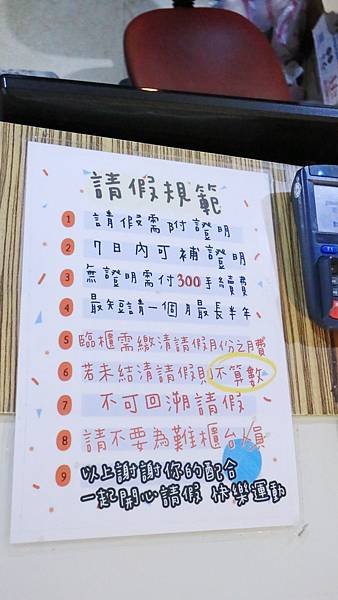 請假規範
1 請假需附證明
2 7日內可補證明
3 無證明需付300手續費
4 最短請一個月最長半年
5 臨櫃需繳清請假月份之月費
6 若未結清請假則不算數
7 不可回溯請假
8 請不要為難櫃台人員
9 以上謝謝你的配合
一起開心請假 快樂運動